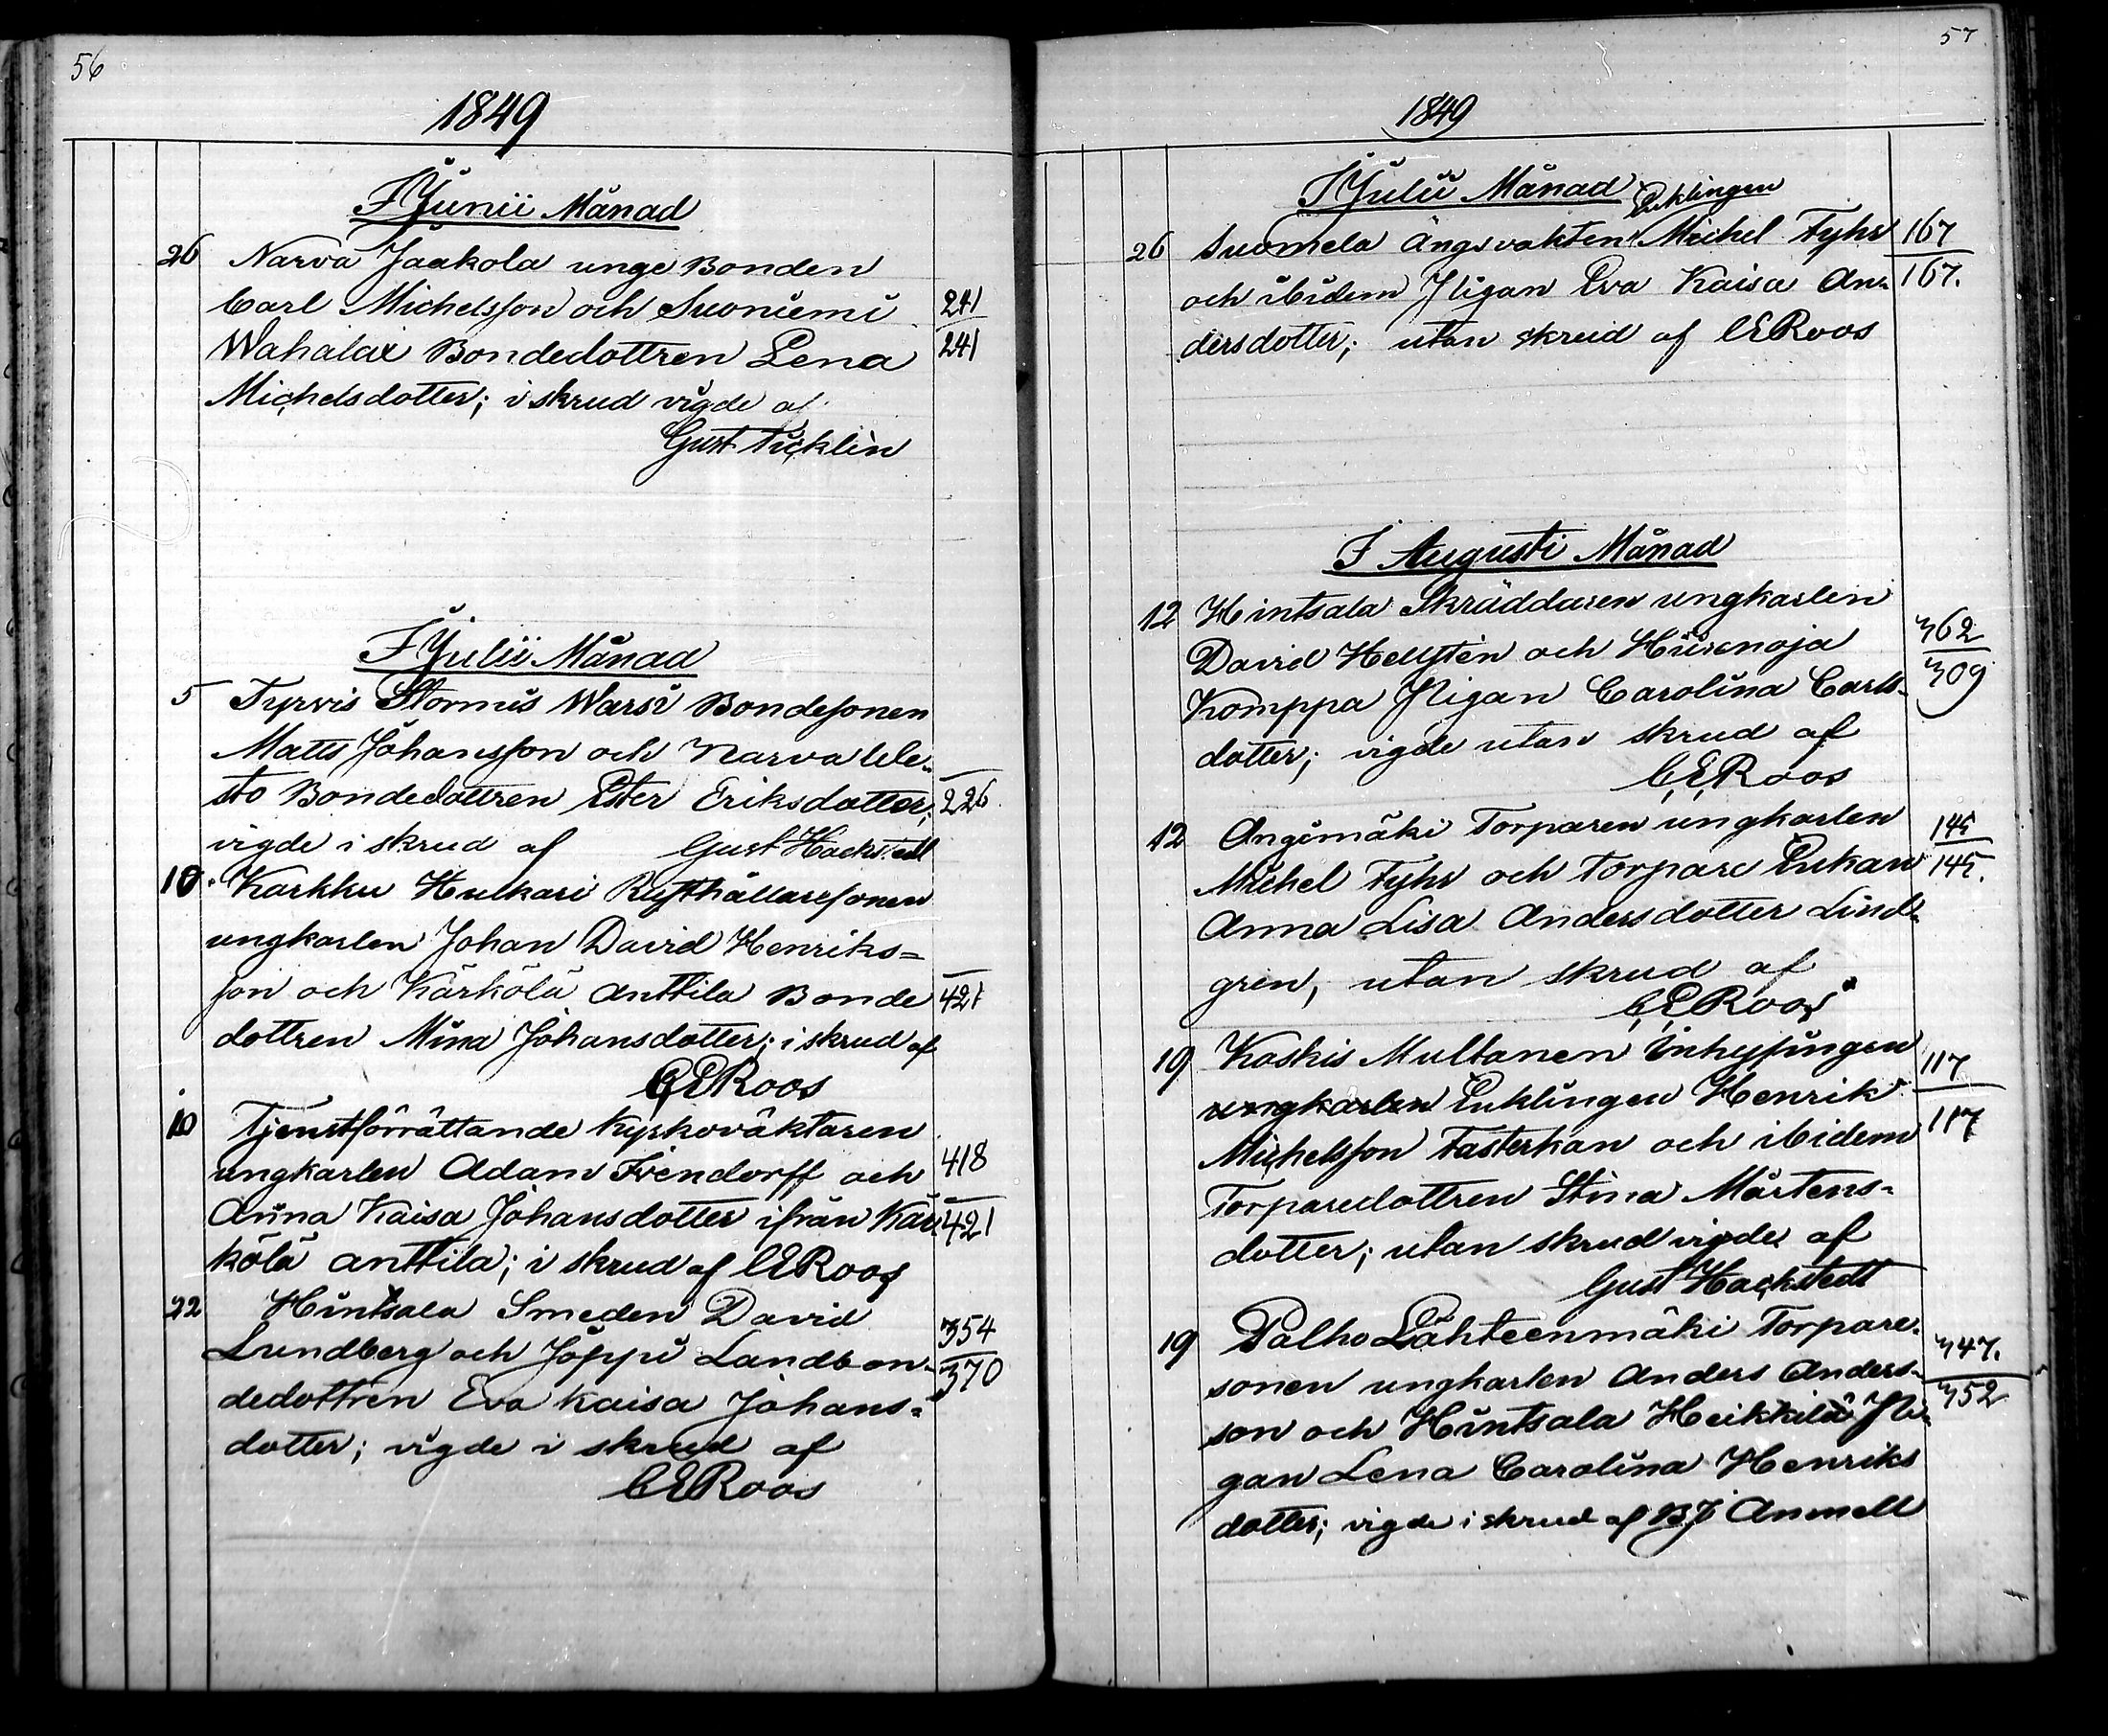 56
1849
I Junii Månad
26 Narva Jaakola unge Bonden
Carl Michelsson och Suoniemi 241
Wahalax Bondedottren Lena 241
Michelsdotter; i skrud vigde af
Gust Ticklén
I Julii Månad
5 Tyrvis Stormis Warsi Bondesonen
Matts Johansson och Narva Ule-
sto Bondedottren Ester Eriksdotter; 226.
vigde i skrud af Gust Hackstedt
10 Karkku Hulkari Rusthållaresonen
ungkarlen Johan David Henriks=
son och Kärkölä Anttila Bonde 421
dottren Mina Johansdotter; i skrud af
CERoos
10 Tjenstförrättande Kyrkoväktaren
ungkarlen Adam Frendorff och 418
Anna Kaisa Johansdotter ifrån Kär 421
kölä Anttila; i skrud af CERoos
22 Hintsala Smeden David
Lundberg och Joppi Landbon- 354
dedottren Eva Kaisa Johans= 370
dotter; vigde i skrud af
CERoos
57
1849
I Julii Månad
Enklingen
26 Suomela ängsvakten Michel Fyhr 167
och ibidem Pigan Eva Kaisa An- 167.
dersdotter; utan skrud af CERoos
I Augusti Månad
12 Hintsala Skräddaren ungkarlen
David Hellstén och Hiirenoja 362
Komppa Pigan Carolina Carls- 309
dotter; vigde utan skrud af
C.E.Roos
12 Angimäki Torparen ungkarlen 145
Michel Fyhr och Torpare Enkan 145.
Anna Lisa Andersdotter Lind-
gren, utan skrud af
C.E.Roos
19 Koskis Multanen Inhysingen 117
ungkarlen Enklingen Henrik
Michelsson Fasterkan och ibidem 117
Torparedottren Stina Mårtens-
dotter; utan skrud vigde af
Gust Hackstedt
19 Palho Lähteenmäki Torpare- 347.
sonen ungkarlen Anders Anders-
son och Hintsala Heikkilä Pi- 352
gan Lena Carolina Henriks
dotter; vigde i skrud af BJ Anmell